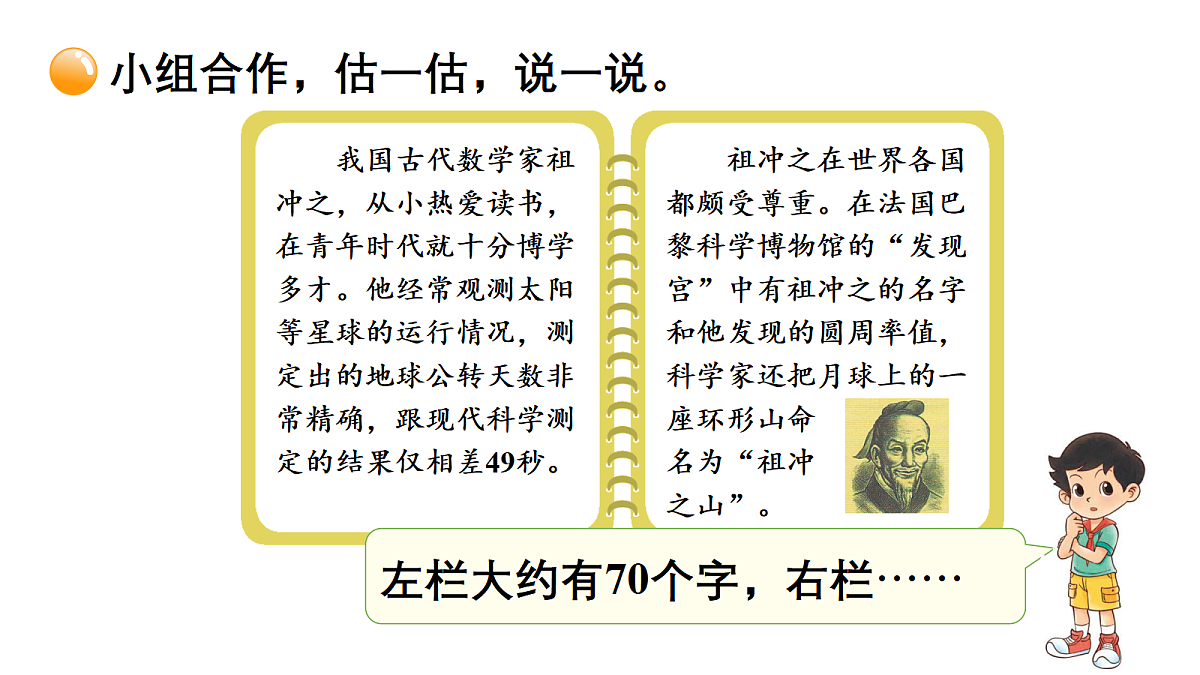 小组合作，估一估，说一说。
我国古代数学家祖
冲之，从小热爱读书，
在青年时代就十分博学
多才。他经常观测太阳
等星球的运行情况，测
定出的地球公转天数非
常精确，跟现代科学测
定的结果仅相差49秒。
祖冲之在世界各国
都颇受尊重。在法国巴
黎科学博物馆的“发现
宫”中有祖冲之的名字
和他发现的圆周率值，
科学家还把月球上的一
座环形山命
名为“祖冲
之山”。
左栏大约有70个字，右栏……